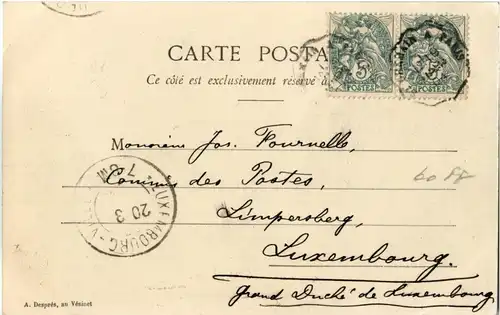 CARTE POSTA
Ce côté est exclusivement réservé à
5
POSTES
5
POSTES
A PARIS
Monsieur Jos. Fournelle,
Commis des Postes,
Limpersberg,
Luxembourg.
Grand Duché de Luxembourg
LUXEMBOURG-V
20 3
7-8
A. Després, au Vésinet